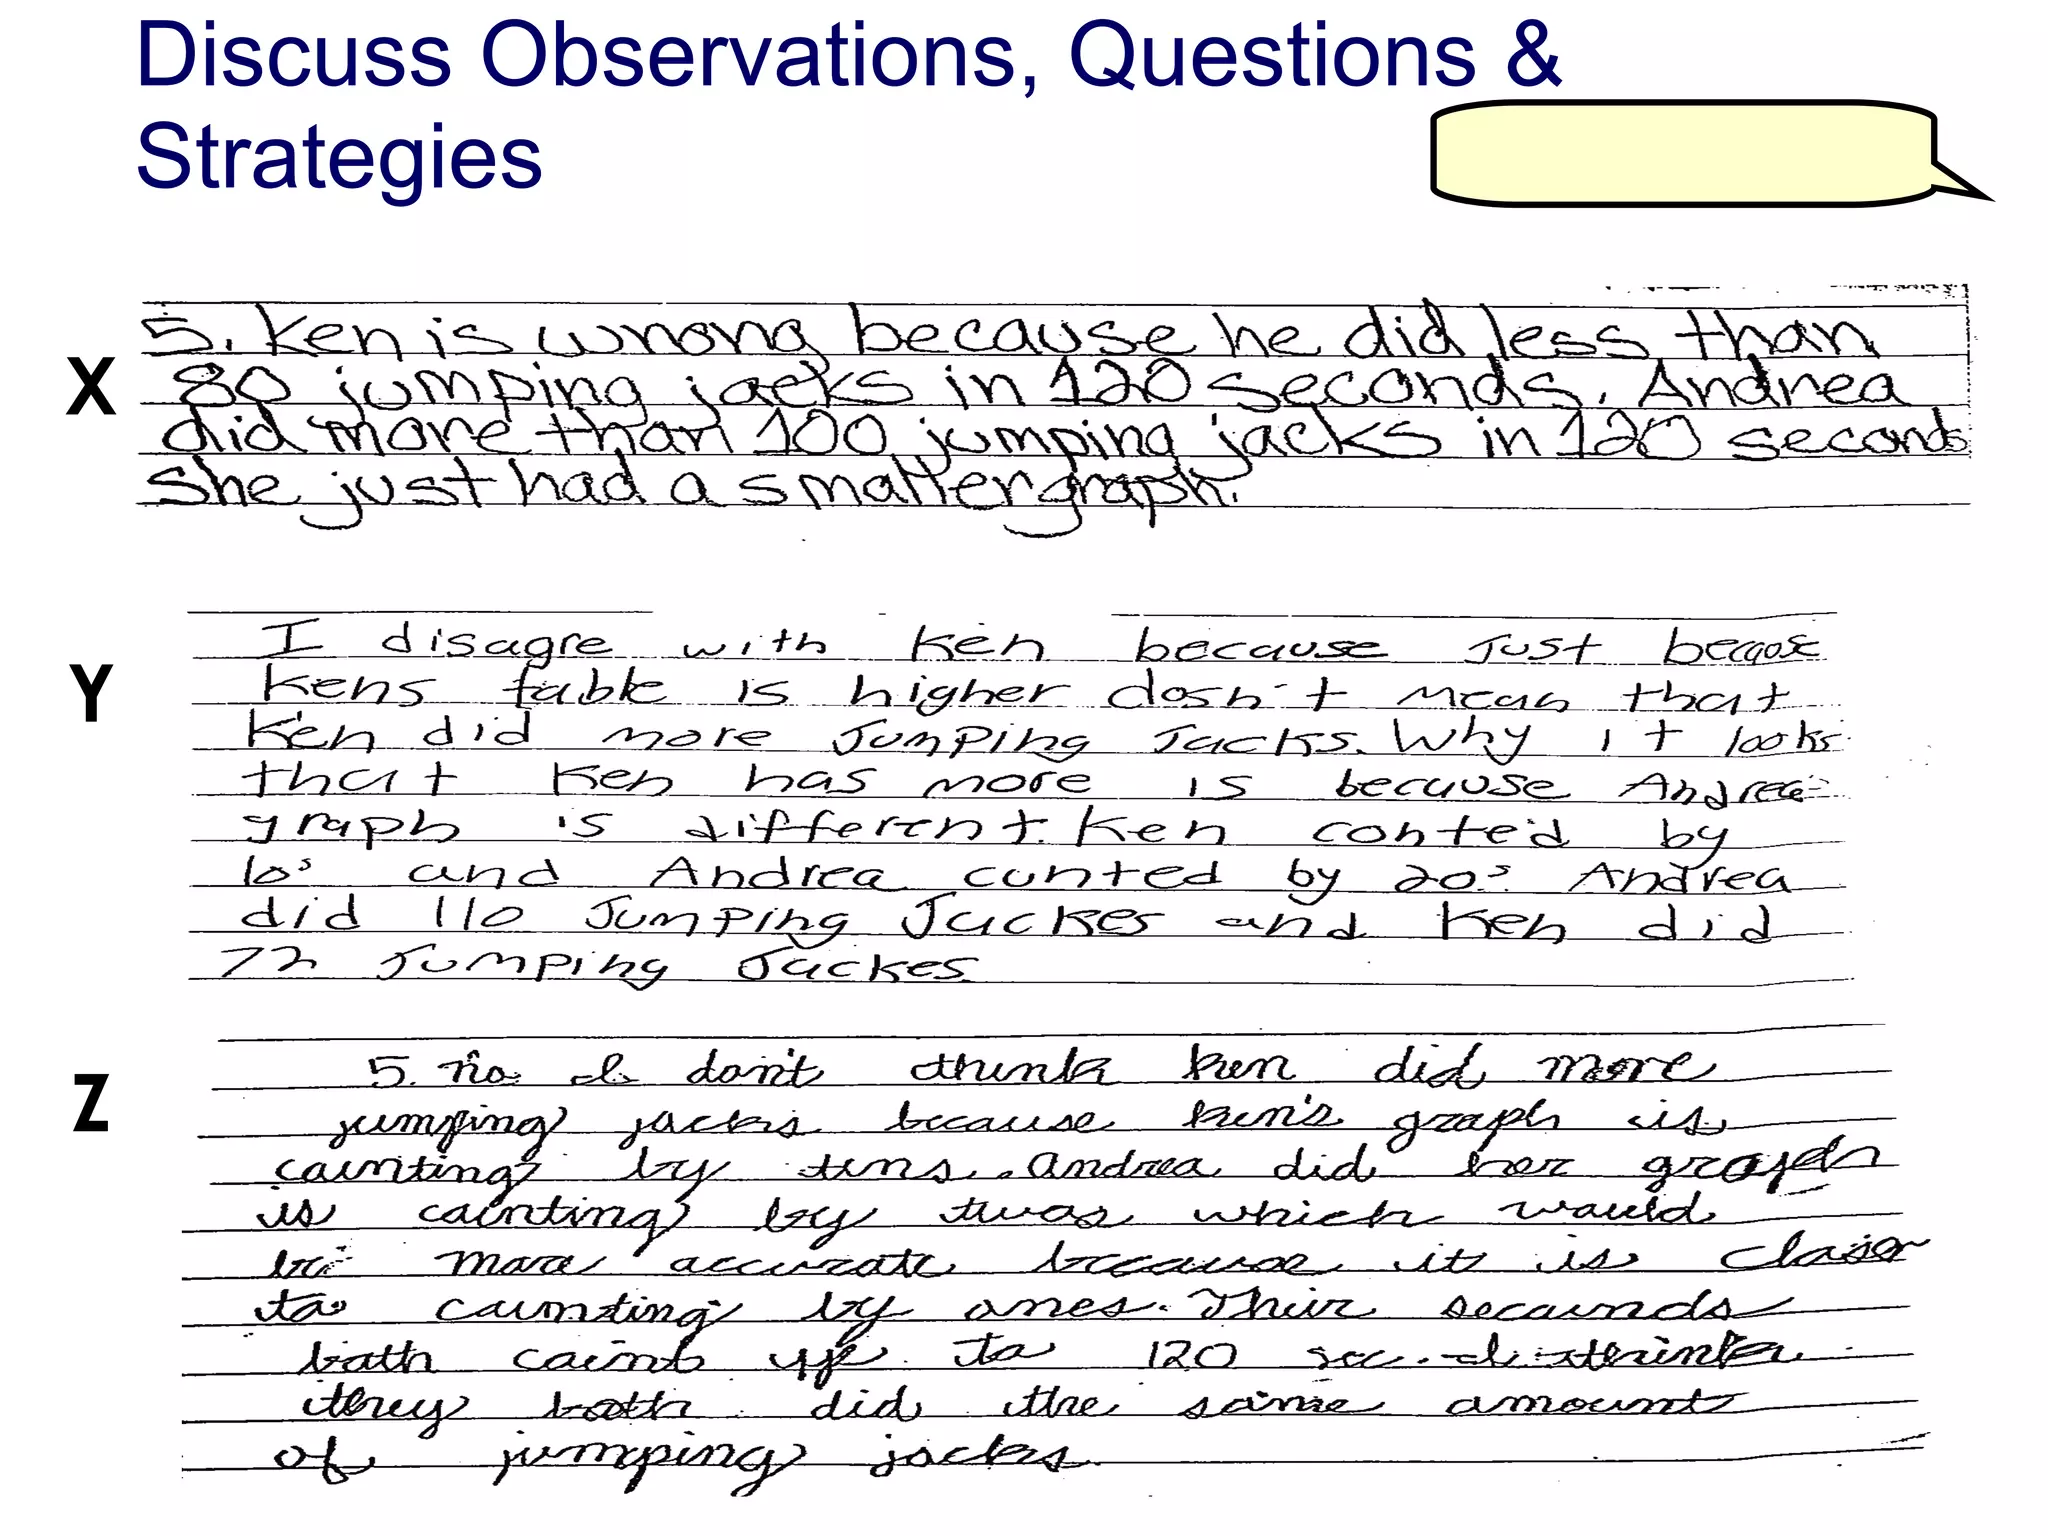 Discuss Observations, Questions &
Strategies
X
5. Ken is wrong because he did less than
80 jumping jacks in 120 seconds. Andrea
did more than 100 jumping jacks in 120 seconds
She just had a smaller graph.
Y
I disagre with Ken because Just becaose
Kens table is higher dosn't mean that
Ken did more Jumping Jacks. Why it looks
that Ken has more is because Andrea
graph is different. Ken conted by
10s and Andrea cunted by 20s. Andrea
did 110 Jumping Jackes and Ken did
72 Jumping Jackes.
Z
5. no I don't think ken did more
jumping jacks because ken's graph is
counting by tens. andrea did her graph
is counting by twos which would
be more accurate because it is closer
to counting by ones. Their secounds
both count up to 120 sec. I think
they both did the same amount
of jumping jacks.